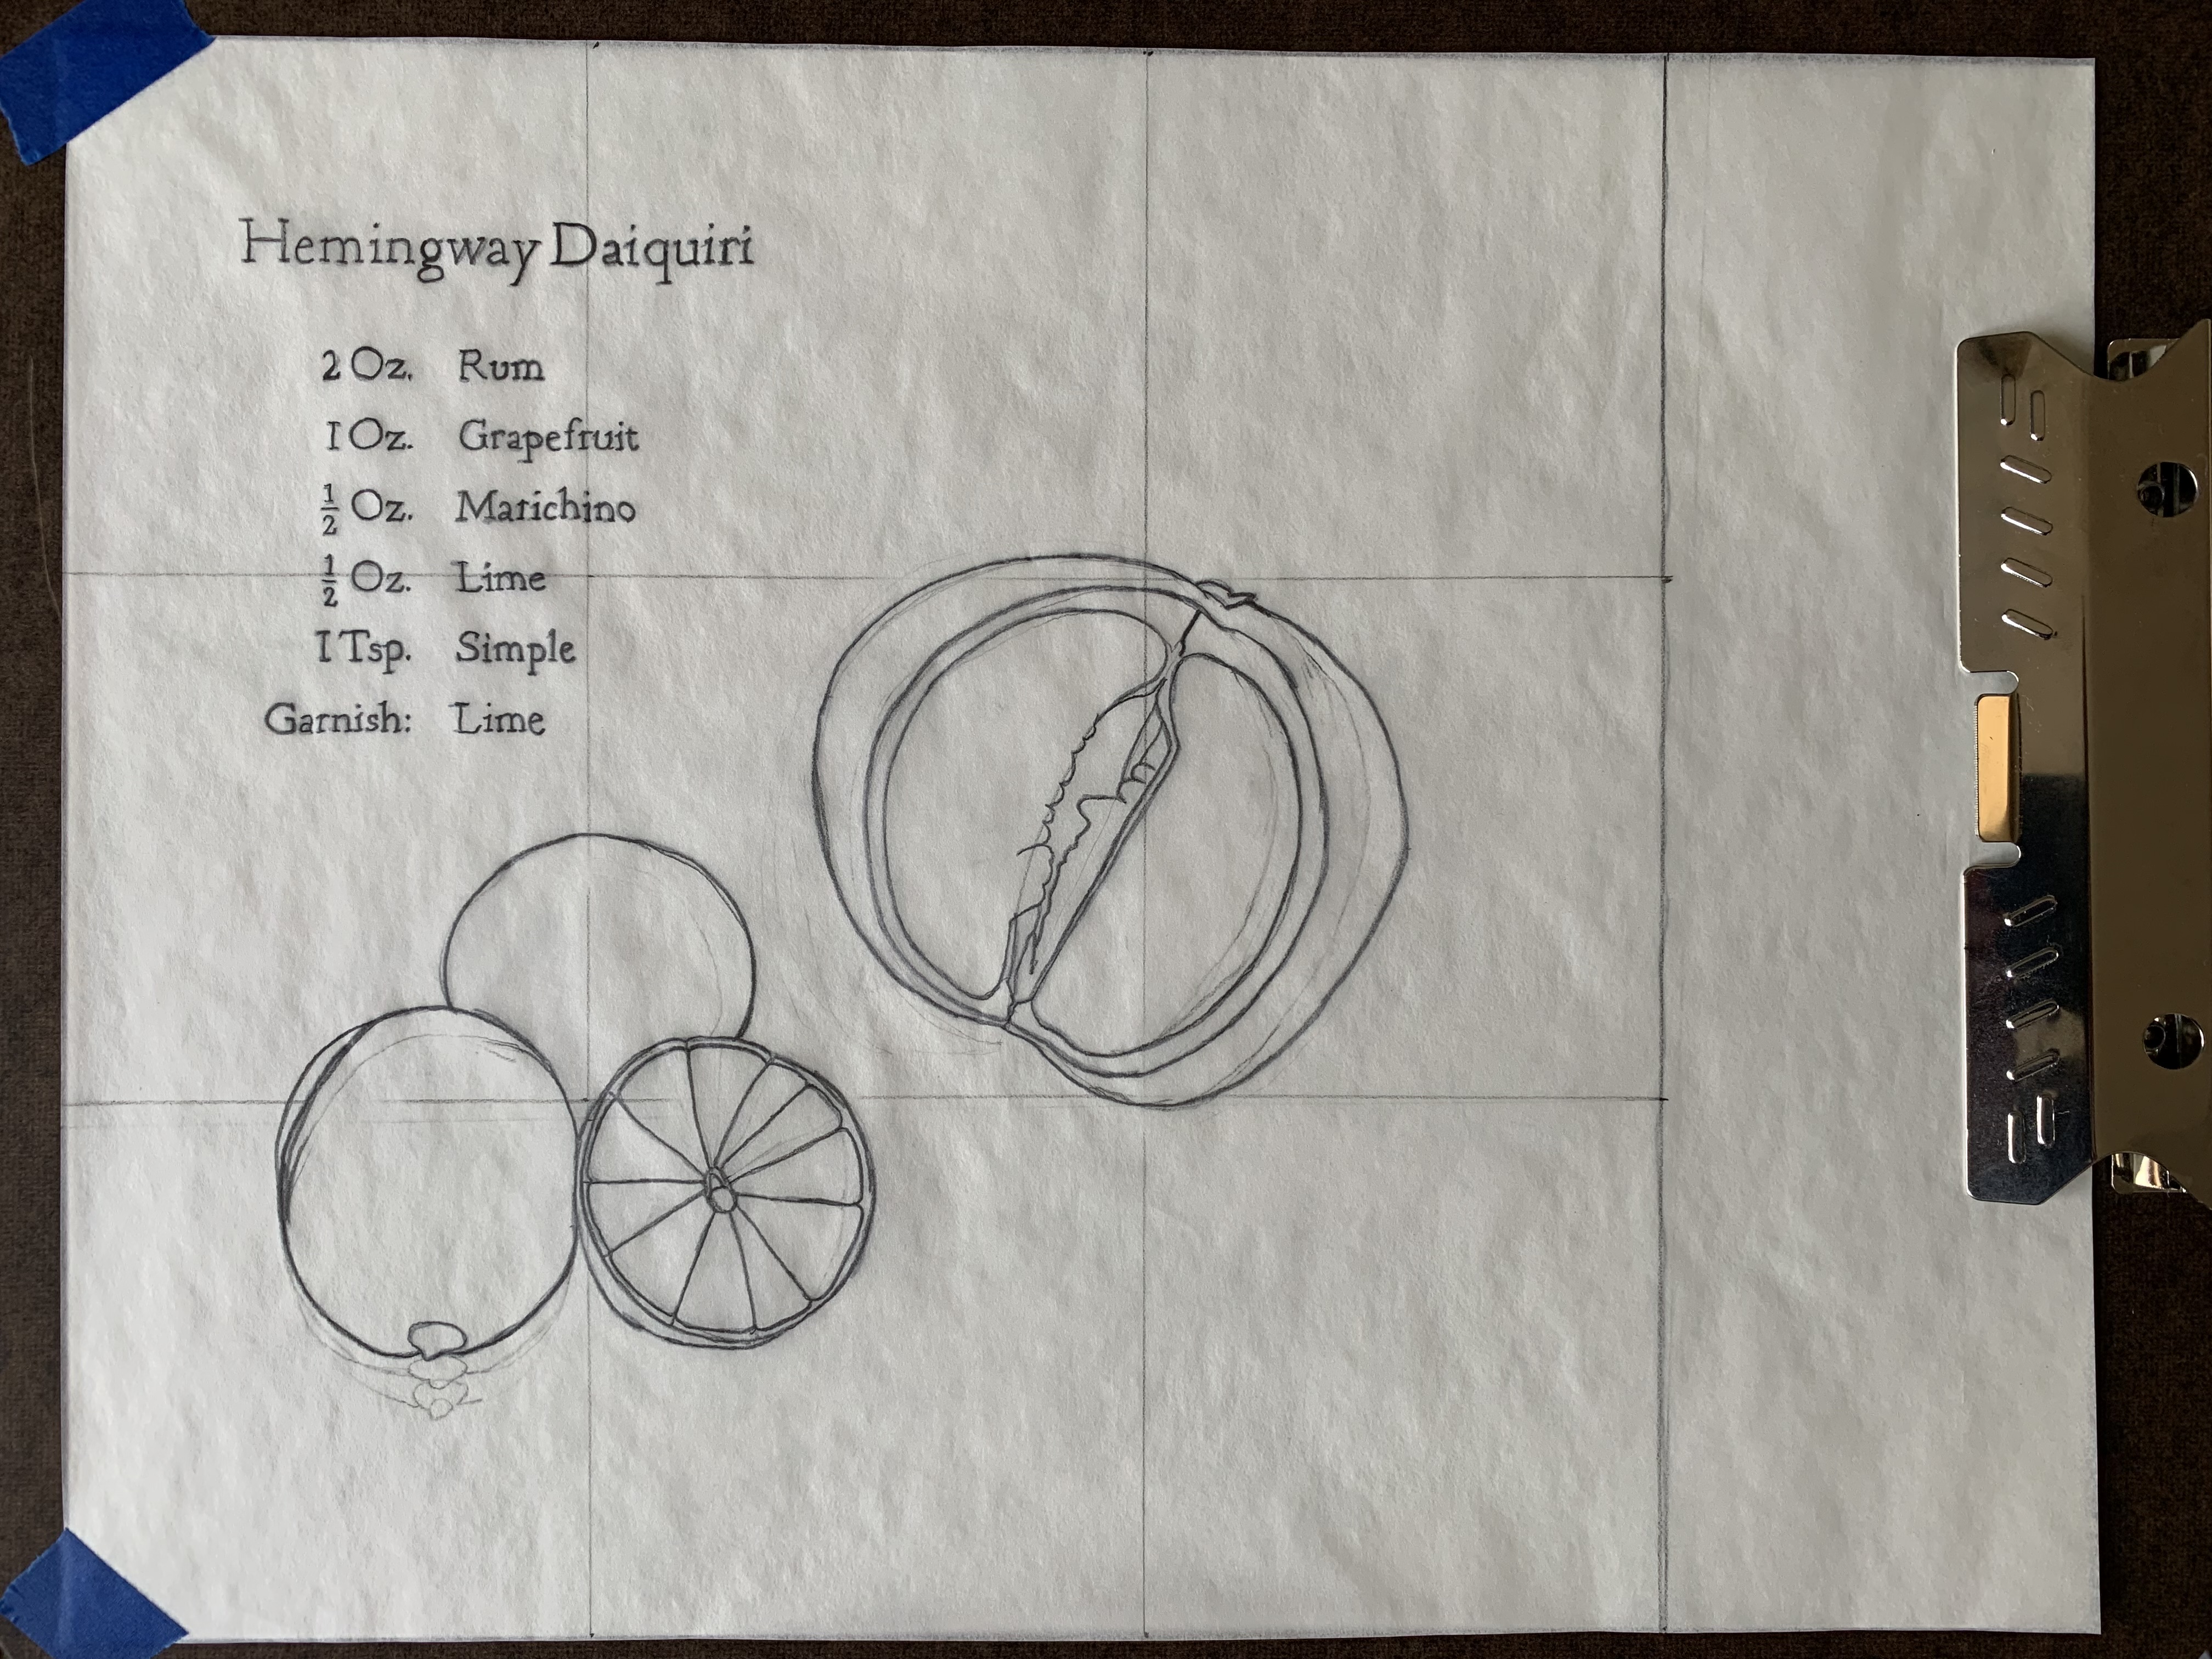 Hemingway Daiquiri
2 Oz. Rum
1 Oz. Grapefruit
1/2 Oz. Marichino
1/2 Oz. Lime
1 Tsp. Simple
Garnish: Lime